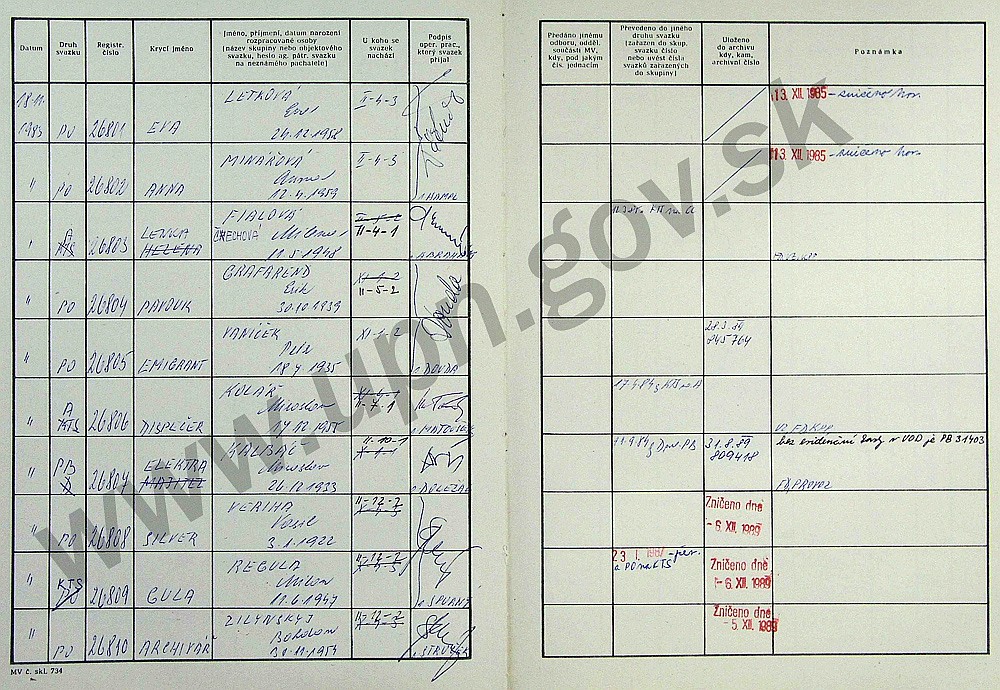 Datum
Druh svazku
Registr. číslo
Krycí jméno
Jméno, příjmení, datum narození
rozpracované osoby
(název skupiny nebo objektového
svazku, heslo ag. pátr. svazku
na neznámého pachatele)
U koho se
svazek
nachází
Podpis
oper. prac.,
který svazek
přijal
Předáno jinému
odboru, odděl.
součásti MV,
kdy, pod jakým
čís. jednacím
Převedeno do jiného
druhu svazku
(zařazen do skup.
svazku číslo
nebo uvést čísla
svazků zařazených
do skupiny)
Uloženo
do archivu
kdy, kam,
archivní číslo
Poznámka
18.11.
1983 PO 26801 EVA
LETKOVÁ
Eva
24.12.1958
II-4-3
13. XII. 1985 - zničeno
" PO 26802 ANNA
MINÁŘOVÁ
12.4.1959
II-4-3
HAMPL
13. XII. 1985 - zničeno
" A KTS 26803 LENKA
HELENA
FIALOVÁ
ČECHOVÁ Milena
11.5.1948
II-4-1
" PO 26804 PAVOUK
GRAFAREND
Erik
30.10.1939
XI-1-2
II-5-2
" PO 26805 EMIGRANT
VANÍČEK
Petr
18.4.1935
XI-1-2
DOUDA
28.3.89
845764
" A KTS 26806 DISPEČER
KOLÁŘ
Miroslav
II-7-1
MATOUŠEK
17.4.84 KTS na A
" PB 26807 ELEKTRA
Miroslav
26.12.1933
II-10-1
DOLEŽAL
31.8.89
809418
" PO 26808 SILVER
VERIHA
Vasil
3.1.1922
II-12-2
Zničeno dne
- 6. XII. 1989
" KTS PO 26809 GULA
REGULA
Milan
11.6.1947
II-12-2
SPURNÝ
23. I. 1987 - per.
a PO na KTS
Zničeno dne
- 6. XII. 1989
" PO 26810 ARCHIVÁŘ
ZILYNSKYJ
Bohdan
II-12-2
Zničeno dne
- 5. XII. 1989
MV č. skl. 734
www.upn.gov.sk